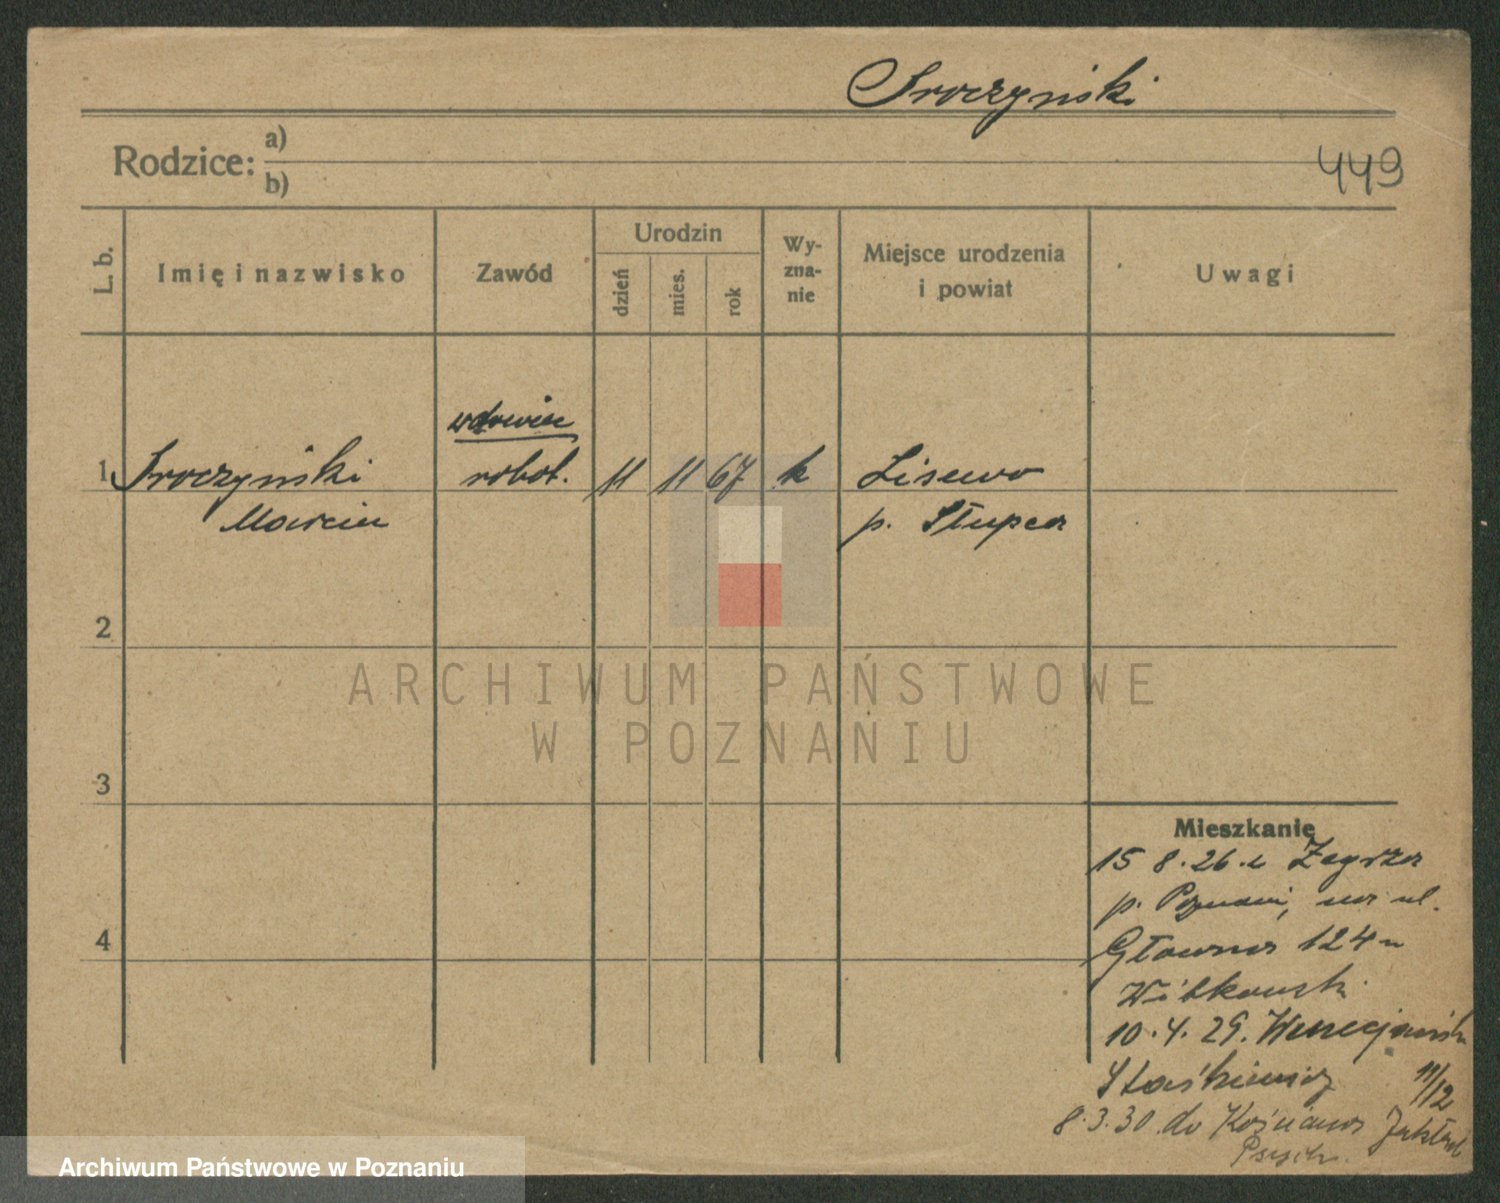 Sroczyński
Rodzice: a)
b)
449
L. b.
Imię i nazwisko
Zawód
Urodzin
dzień
mies.
rok
Wy-
zna-
nie
Miejsce urodzenia
i powiat
Uwagi
wdowiec
1 Sroczyński robot. 11 11 67 k Lisewo
Marcin p. Słupca
2
ARCHIWUM PAŃSTWOWE
W POZNANIU
3
Mieszkanie
15 8. 26. z Zegrza
p. Poznań, na ul.
4
Główna 124 u
Witkowski
10. 4. 29. Wenecjańska
Staśkiewicz 11/12
8.3.30 do Kościana Zakład
Psych.
Archiwum Państwowe w Poznaniu